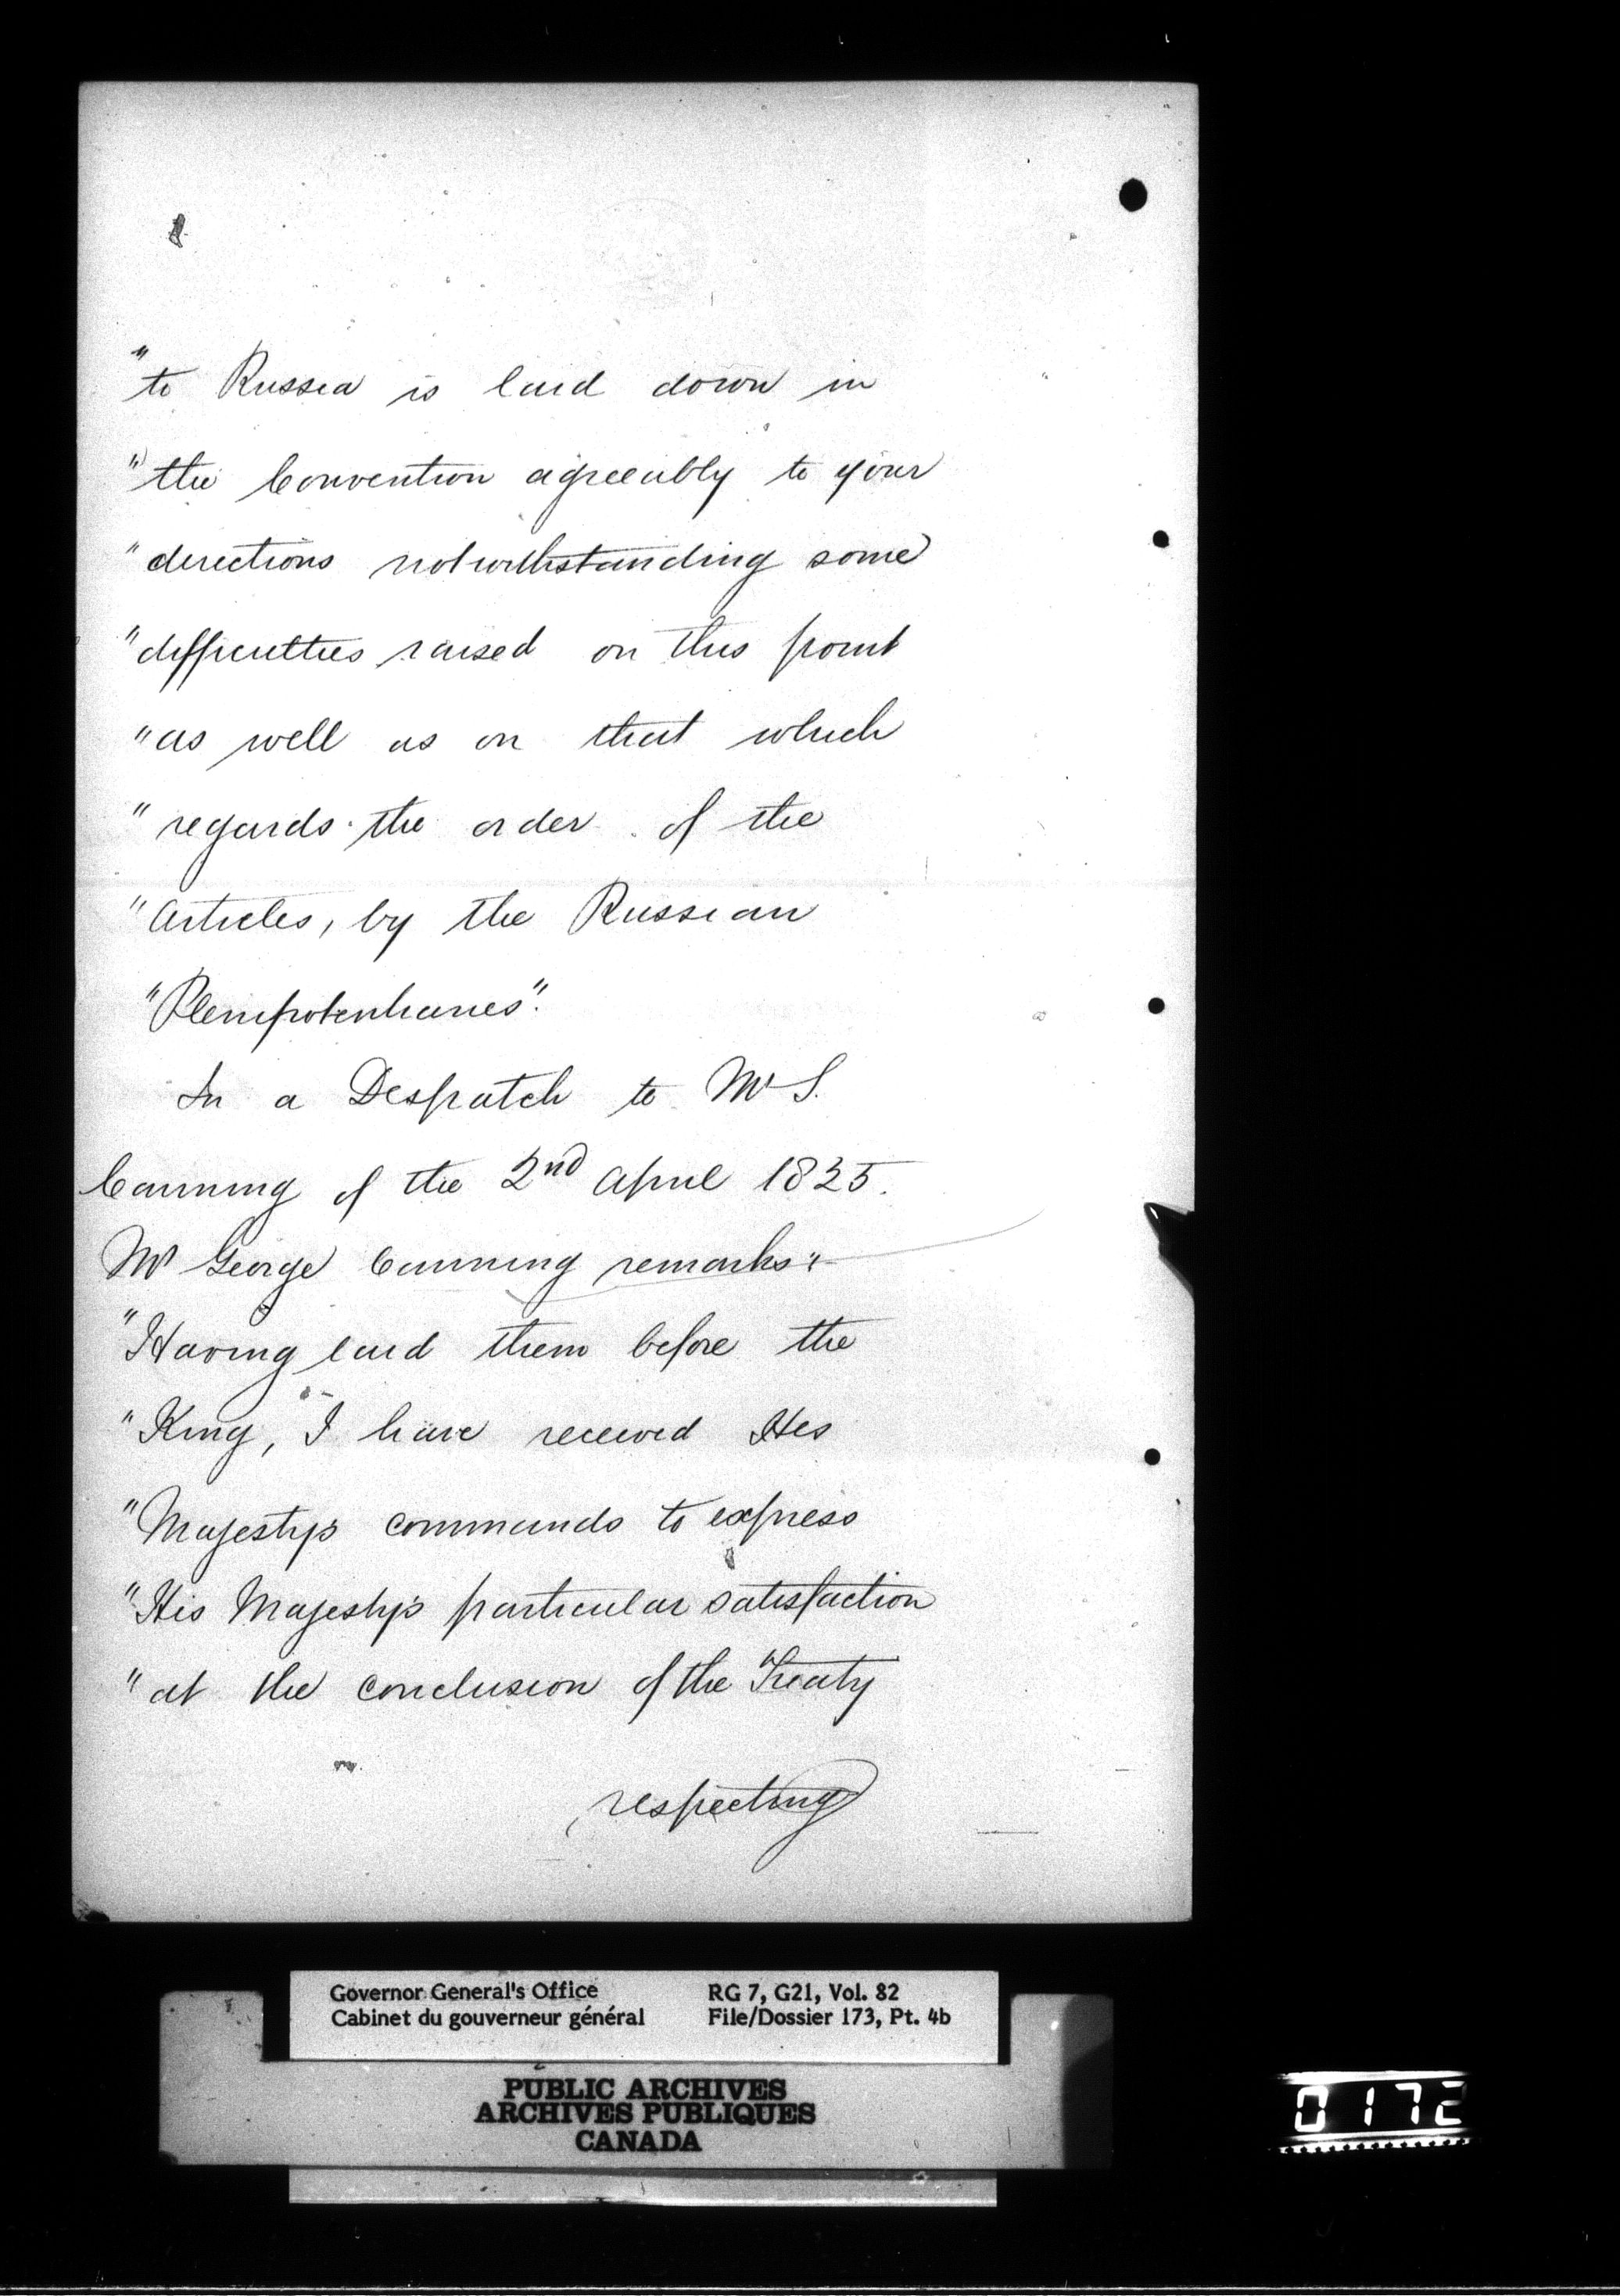 "to Russia is laid down in
"the Convention agreeably to your
"directions notwithstanding some
"difficulties raised on this point
"as well as on that which
"regards the order of the
"Articles, by the Russian
"Plenipotentiaries".
In a Despatch to Mr S.
Canning of the 2nd April 1825.
Mr George Canning remarks:
"Having laid them before the
"King, I have received His
"Majesty's commands to express
"His Majesty's particular satisfaction
"at the conclusion of the Treaty
respecting
Governor General's Office
Cabinet du gouverneur général
RG 7, G21, Vol. 82
File/Dossier 173, Pt. 4b
PUBLIC ARCHIVES
ARCHIVES PUBLIQUES
CANADA
0172